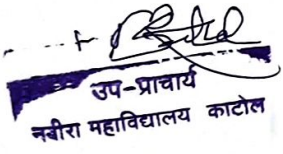 उप-प्राचार्य
नबीरा महाविद्यालय काटोल